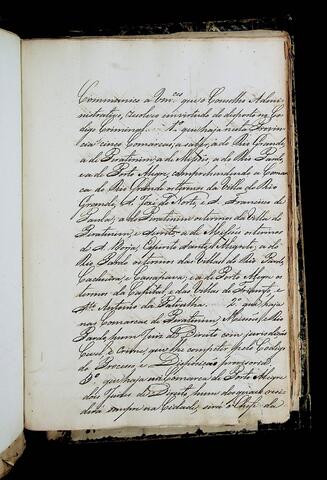 Communico a Vm.ces que o Conselho Admi-
nistrativo, resolveo em virtude do disposto no Co-
digo Criminal 1.º que haja nesta Provin-
cia cinco Comarcas, a saber, a do Rio Grande,
a de Piratinim, a de Missões, a do Rio Pardo,
e a de Porto Alegre, comprehendendo a Comar-
ca do Rio Grande os termos da Villa do Rio
Grande, S. José do Norte, e S. Francisco de
Paula; a de Piratinim os termos da Villa de
Piratinim, e a de Missões os termos
de S. Borja, Espirito Santo, Alegrete; a do
Rio Pardo os termos das Villas do Rio Pardo,
Cachoeira, e Cassapava, e a de Porto Alegre os
termos da Capital, e das Villas do Triunfo, e
Sto. Antonio da Patrulha. 2.º que haja
nas Comarcas de Piratinim, Missões, e Rio
Pardo, hum Juiz de Direito com jurisdicção
Civil, e Crime, que lhe compete pelo Codigo
do Processo, e Disposição provisoria.
3.º que haja na Comarca de Porto Alegre
dois Juizes de Direito, hum dos quaes resi-
dirá sempre na Cidade, será o Chefe da